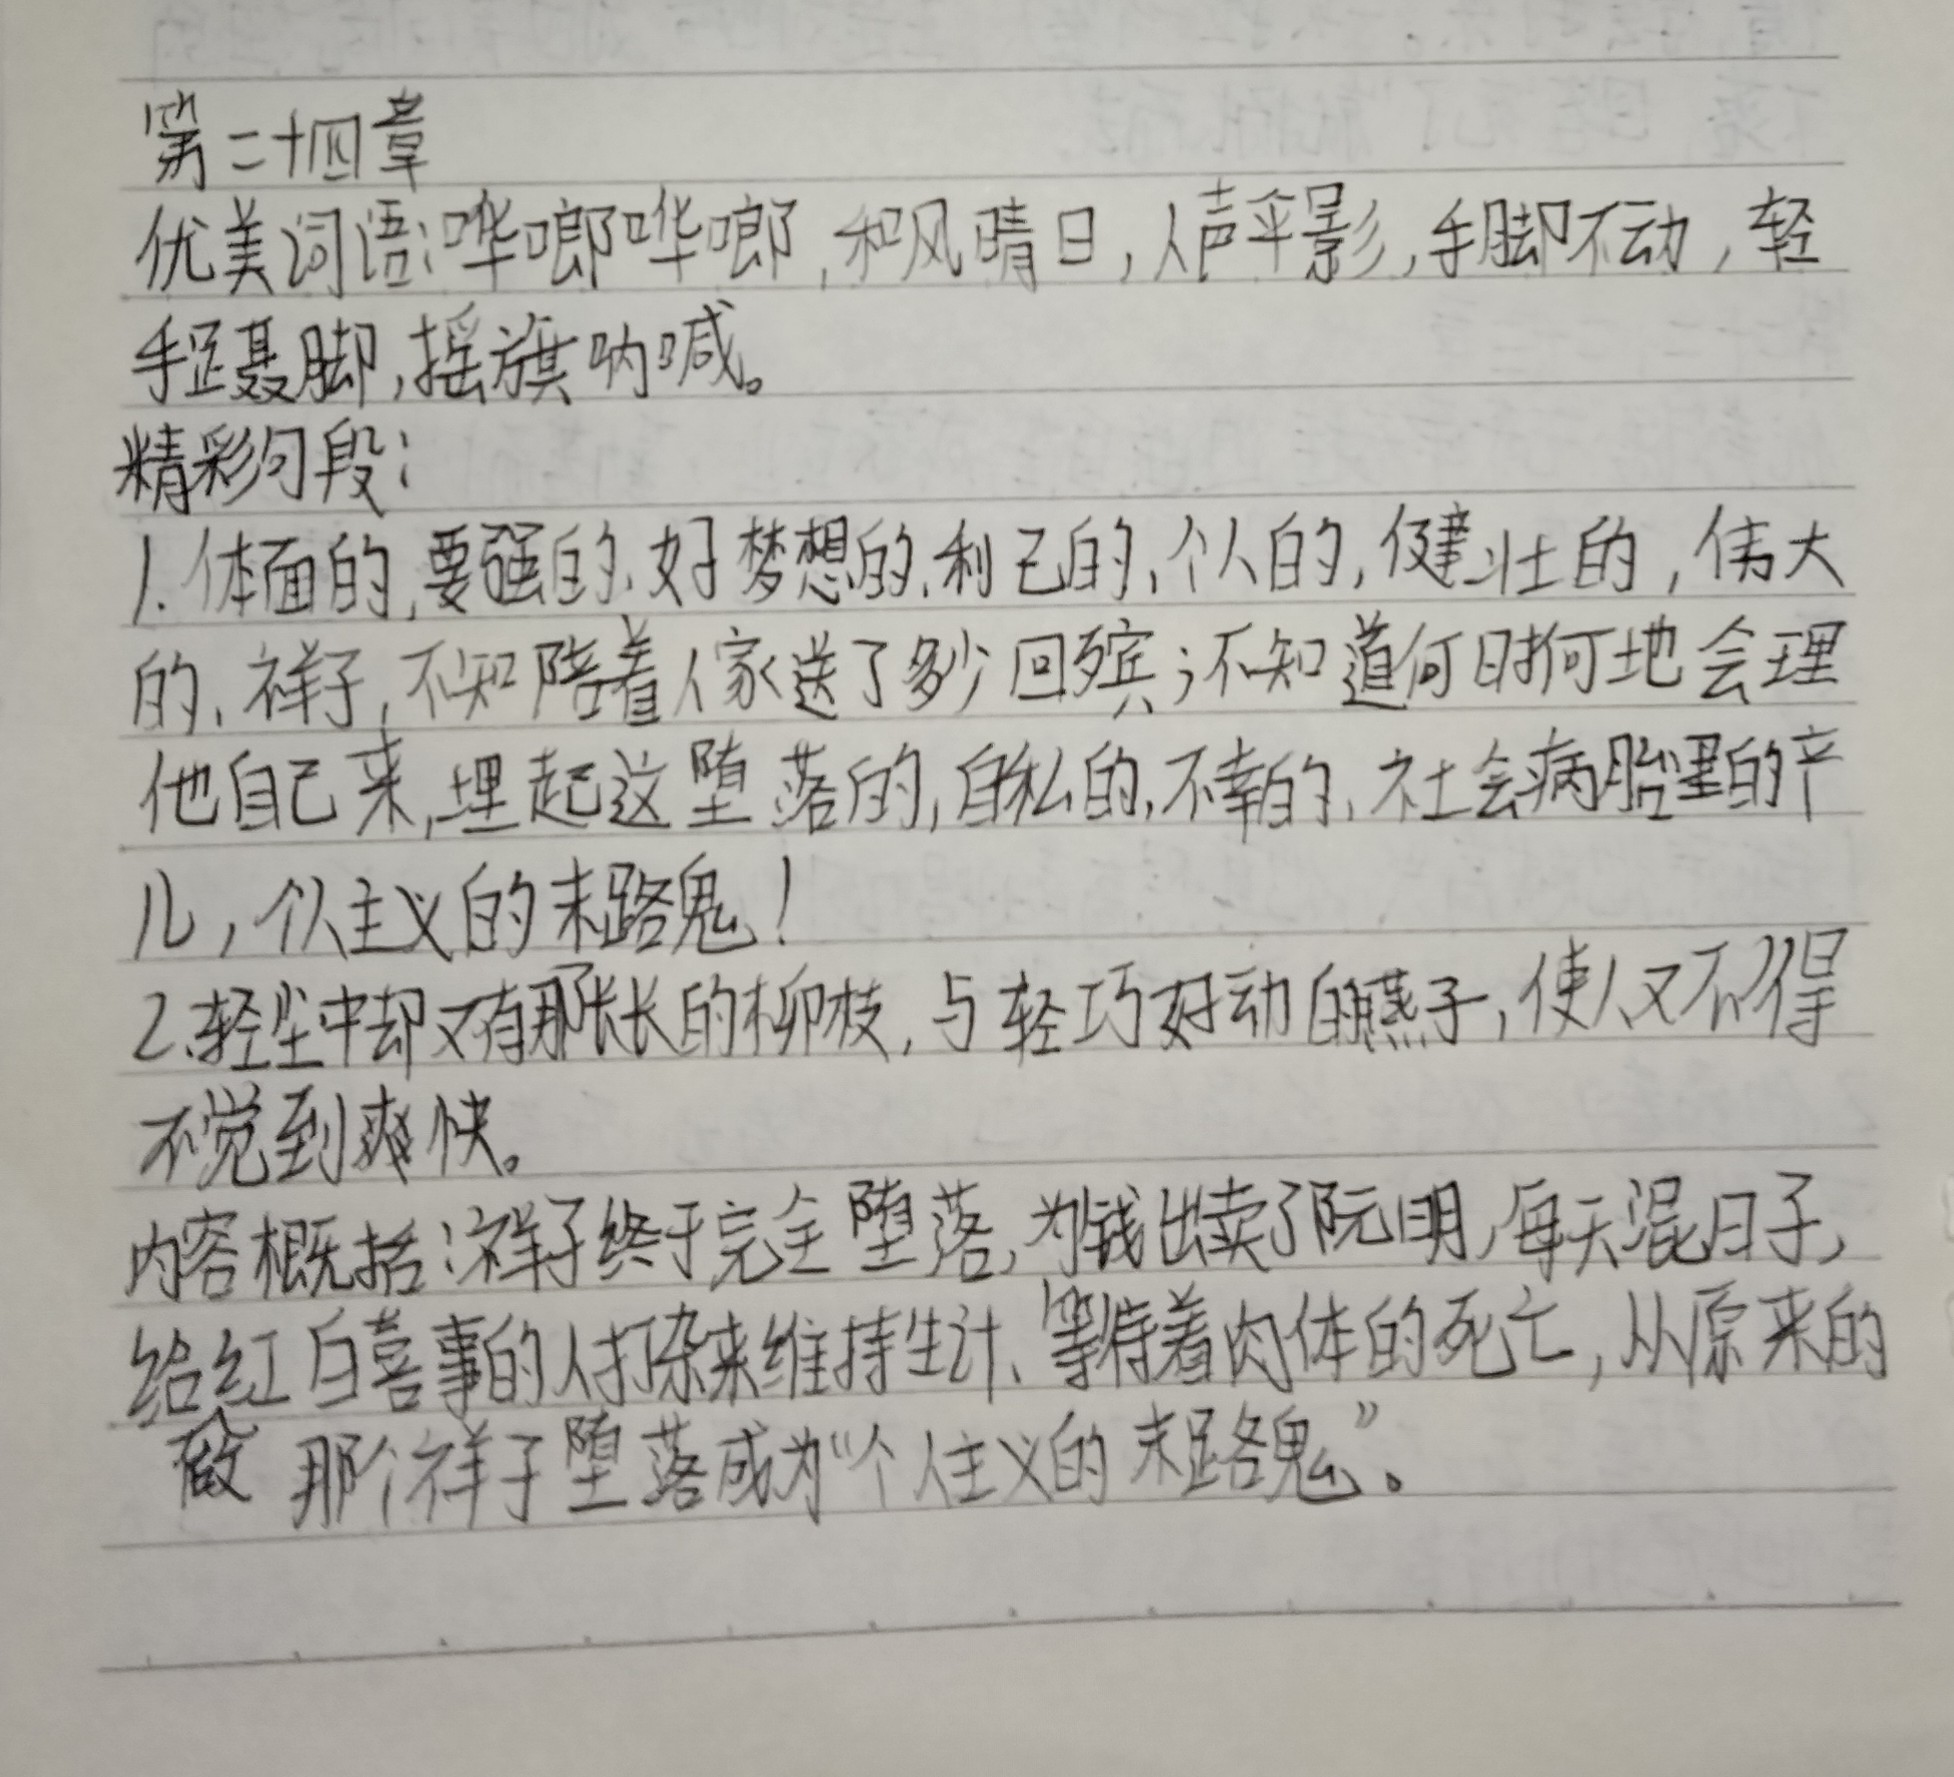 第二十四章
优美词语:哗啷哗啷,和风晴日,人声伞影,手脚不动,轻
手蹑脚,摇旗呐喊。
精彩句段:
1.体面的,要强的、好梦想的,利己的,个人的,健壮的,伟大
的、祥子,不知陪着人家送了多少回殡;不知道何时何地会埋
他自己来,埋起这堕落的,自私的,不幸的、社会病胎里的产
儿,个人主义的末路鬼!
2.轻尘中却又有那长长的柳枝,与轻巧好动的燕子,使人又不得
不觉到爽快。
内容概括:祥子终于完全堕落,为钱出卖了阮明,每天混日子,
给红白喜事的人打杂来维持生计、等待着肉体的死亡,从原来的
那个祥子堕落成为“个人主义的末路鬼”。